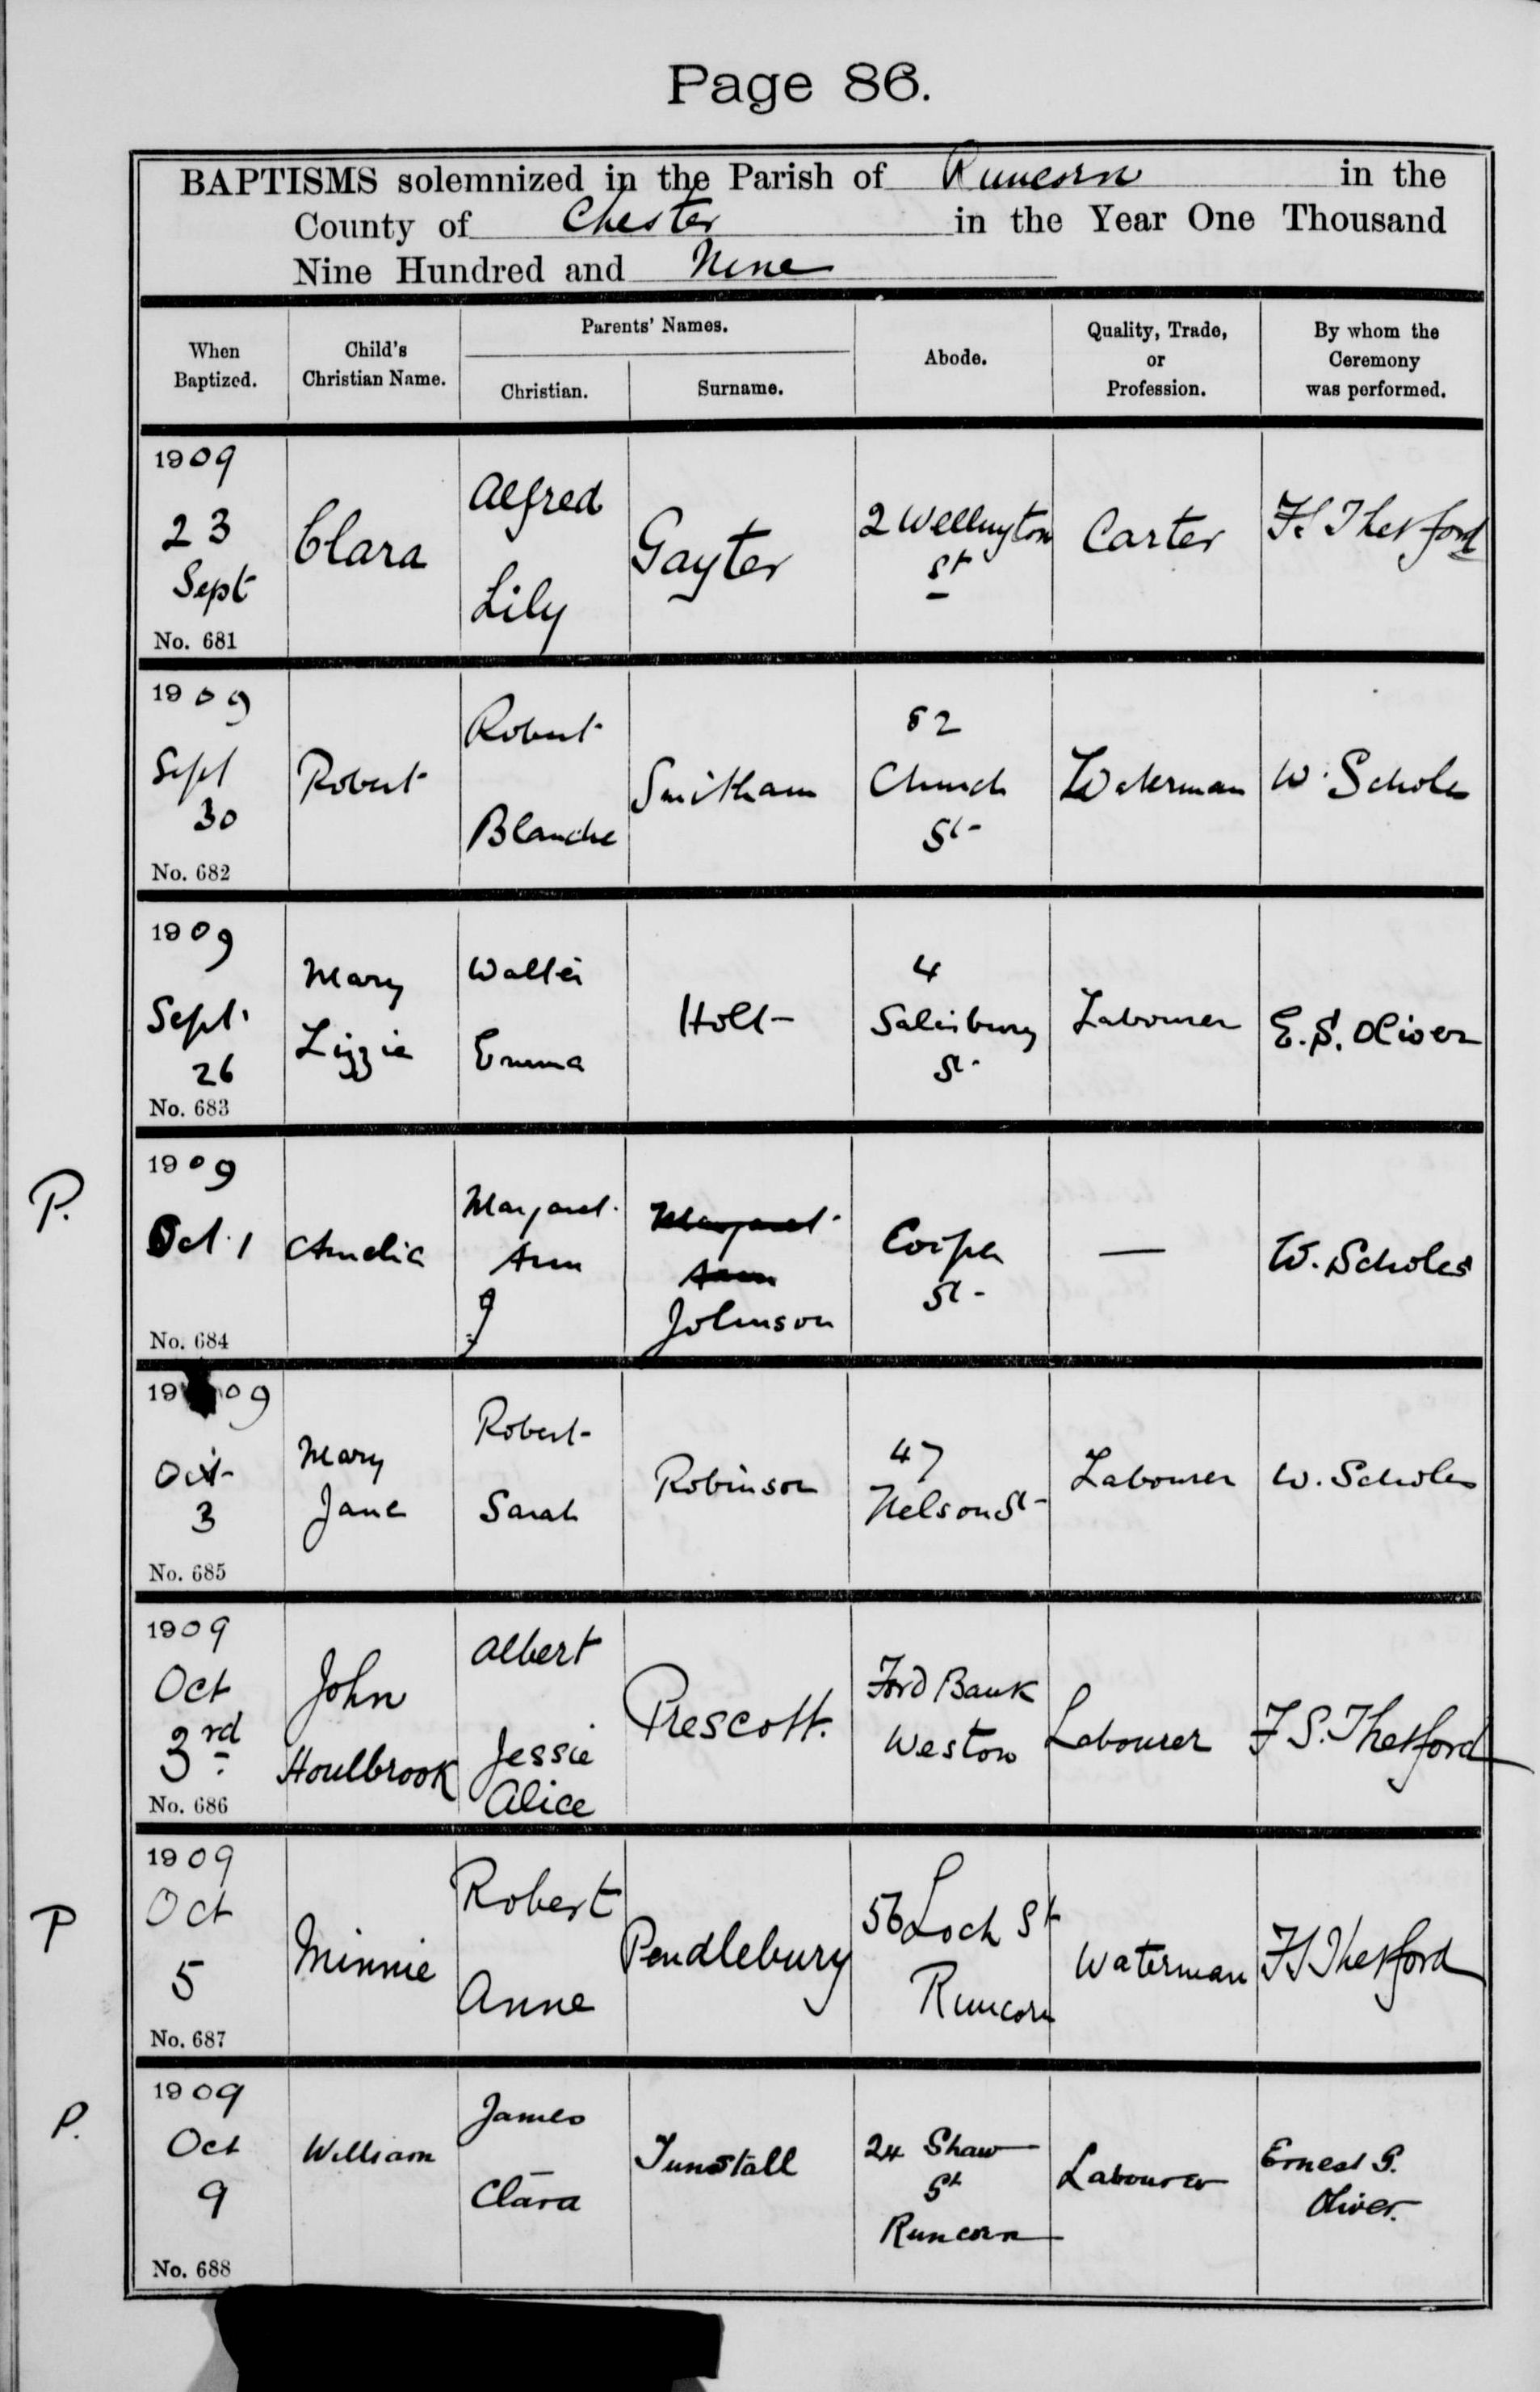 Page 86.
BAPTISMS solemnized in the Parish of Runcorn in the
County of Chester in the Year One Thousand
Nine Hundred and Nine
When Baptized.
Child's Christian Name.
Parents' Names.
Christian.
Surname.
Abode.
Quality, Trade, or Profession.
By whom the Ceremony was performed.
1909
23
Sept
No. 681
Clara
Alfred
Lily
Gayter
2 Wellington
St
Carter
F S Thetford
1909
Sept
30
No. 682
Robert
Robert
Blanche
Smitham
82
Church
St
Waterman
W. Scholes
1909
Sept.
26
No. 683
Mary
Lizzie
Walter
Emma
Holt
4
Salisbury
St
Labourer
E. S. Oliver
P.
1909
Oct. 1
No. 684
Amelia
Margaret
Ann
Margaret
Ann
Johnson
Cooper
St
—
W. Scholes
1909
Oct
3
No. 685
Mary
Jane
Robert
Sarah
Robinson
47
Nelson St
Labourer
W. Scholes
1909
Oct
3rd
No. 686
John
Houlbrook
Albert
Jessie
Alice
Prescott.
Ford Bank
Weston
Labourer
F S. Thetford
P
1909
Oct
5
No. 687
Minnie
Robert
Anne
Pendlebury
56 Loch St
Runcorn
Waterman
F S Thetford
P.
1909
Oct
9
No. 688
William
James
Clara
Tunstall
24 Shaw
St
Runcorn
Labourer
Ernest S.
Oliver.